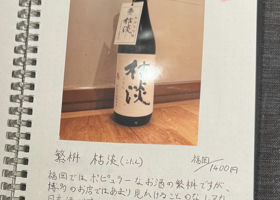 枯淡
繁桝 枯淡(こたん) 福岡/1400円
福岡では ポピュラーな お酒の繁桝ですが、
博多のお店ではあまり見かけることのなし